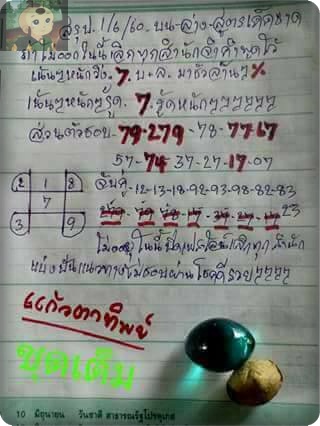 สรุป. 1/6/60. บน-ล่าง-สูตรเด็ดขาด
ถ้าไม่ออกในนี้เลิกทุกสำนักจำคำพูดไว้
เน้นๆหนักวิ่ง. 7. บ+ล. มาชัวล้านๆ%
เน้นๆหนักๆรูด. 7. รูดหนักๆๆๆๆๆๆ
ส่วนตัวชอบ- 79-279-78-77-67
57-74-37-27-17-07
2 1 8
7
3 9
จับคู่-12-13-18-92-93-98-82-83
23
ไม่อยู่ในนี้ปิดเฟส
แนวทางไม่ชอบผ่านโชคดีรวยๆๆๆๆ
แก้วตาทิพย์
ชุดเต็ม
10 มิถุนายน วันชาติ สาธารณรัฐโปรตุเกส